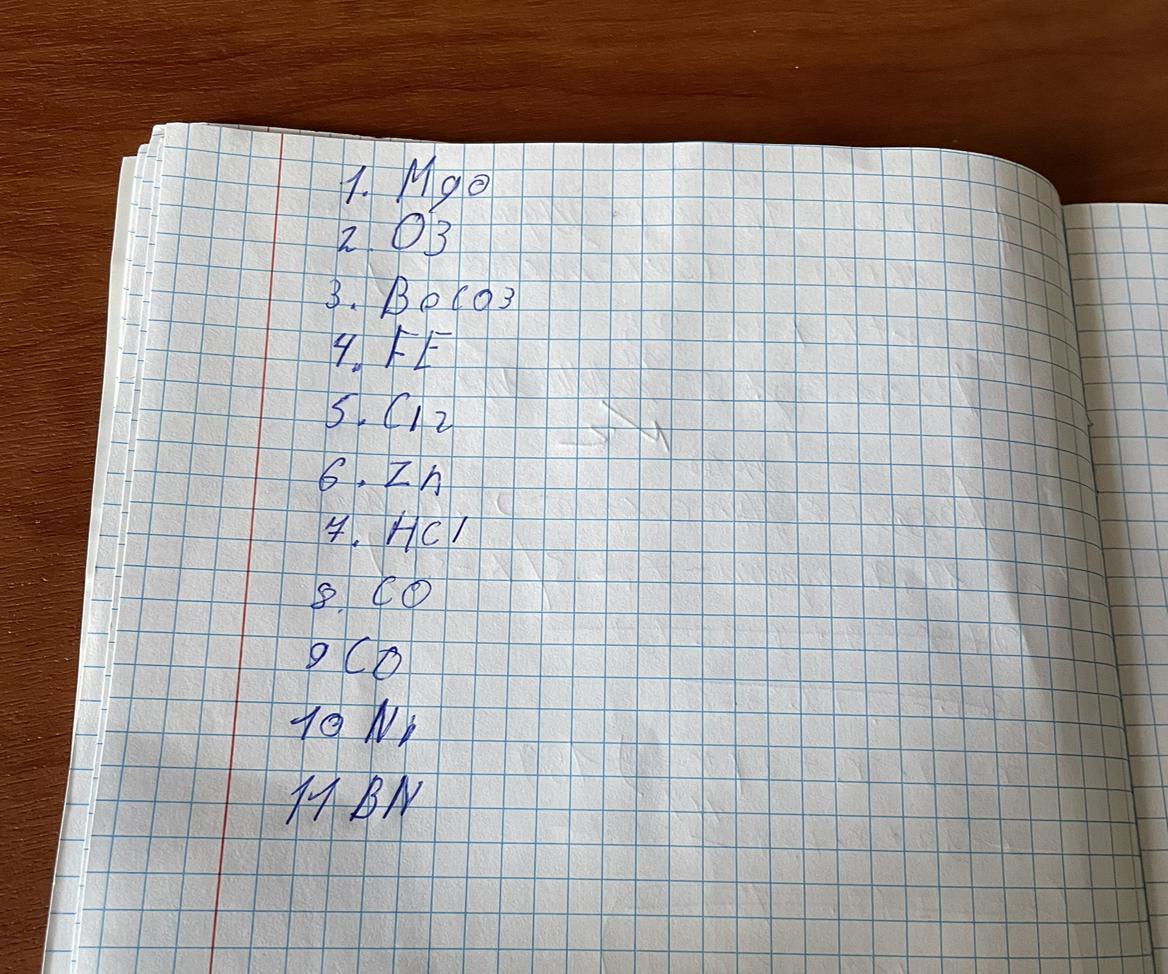 1. Mgo
2. O3
3. BaCO3
4. FE
5. Cl2
6. Zn
7. HCl
8. CO
9 CO
10 Ni
11 BN